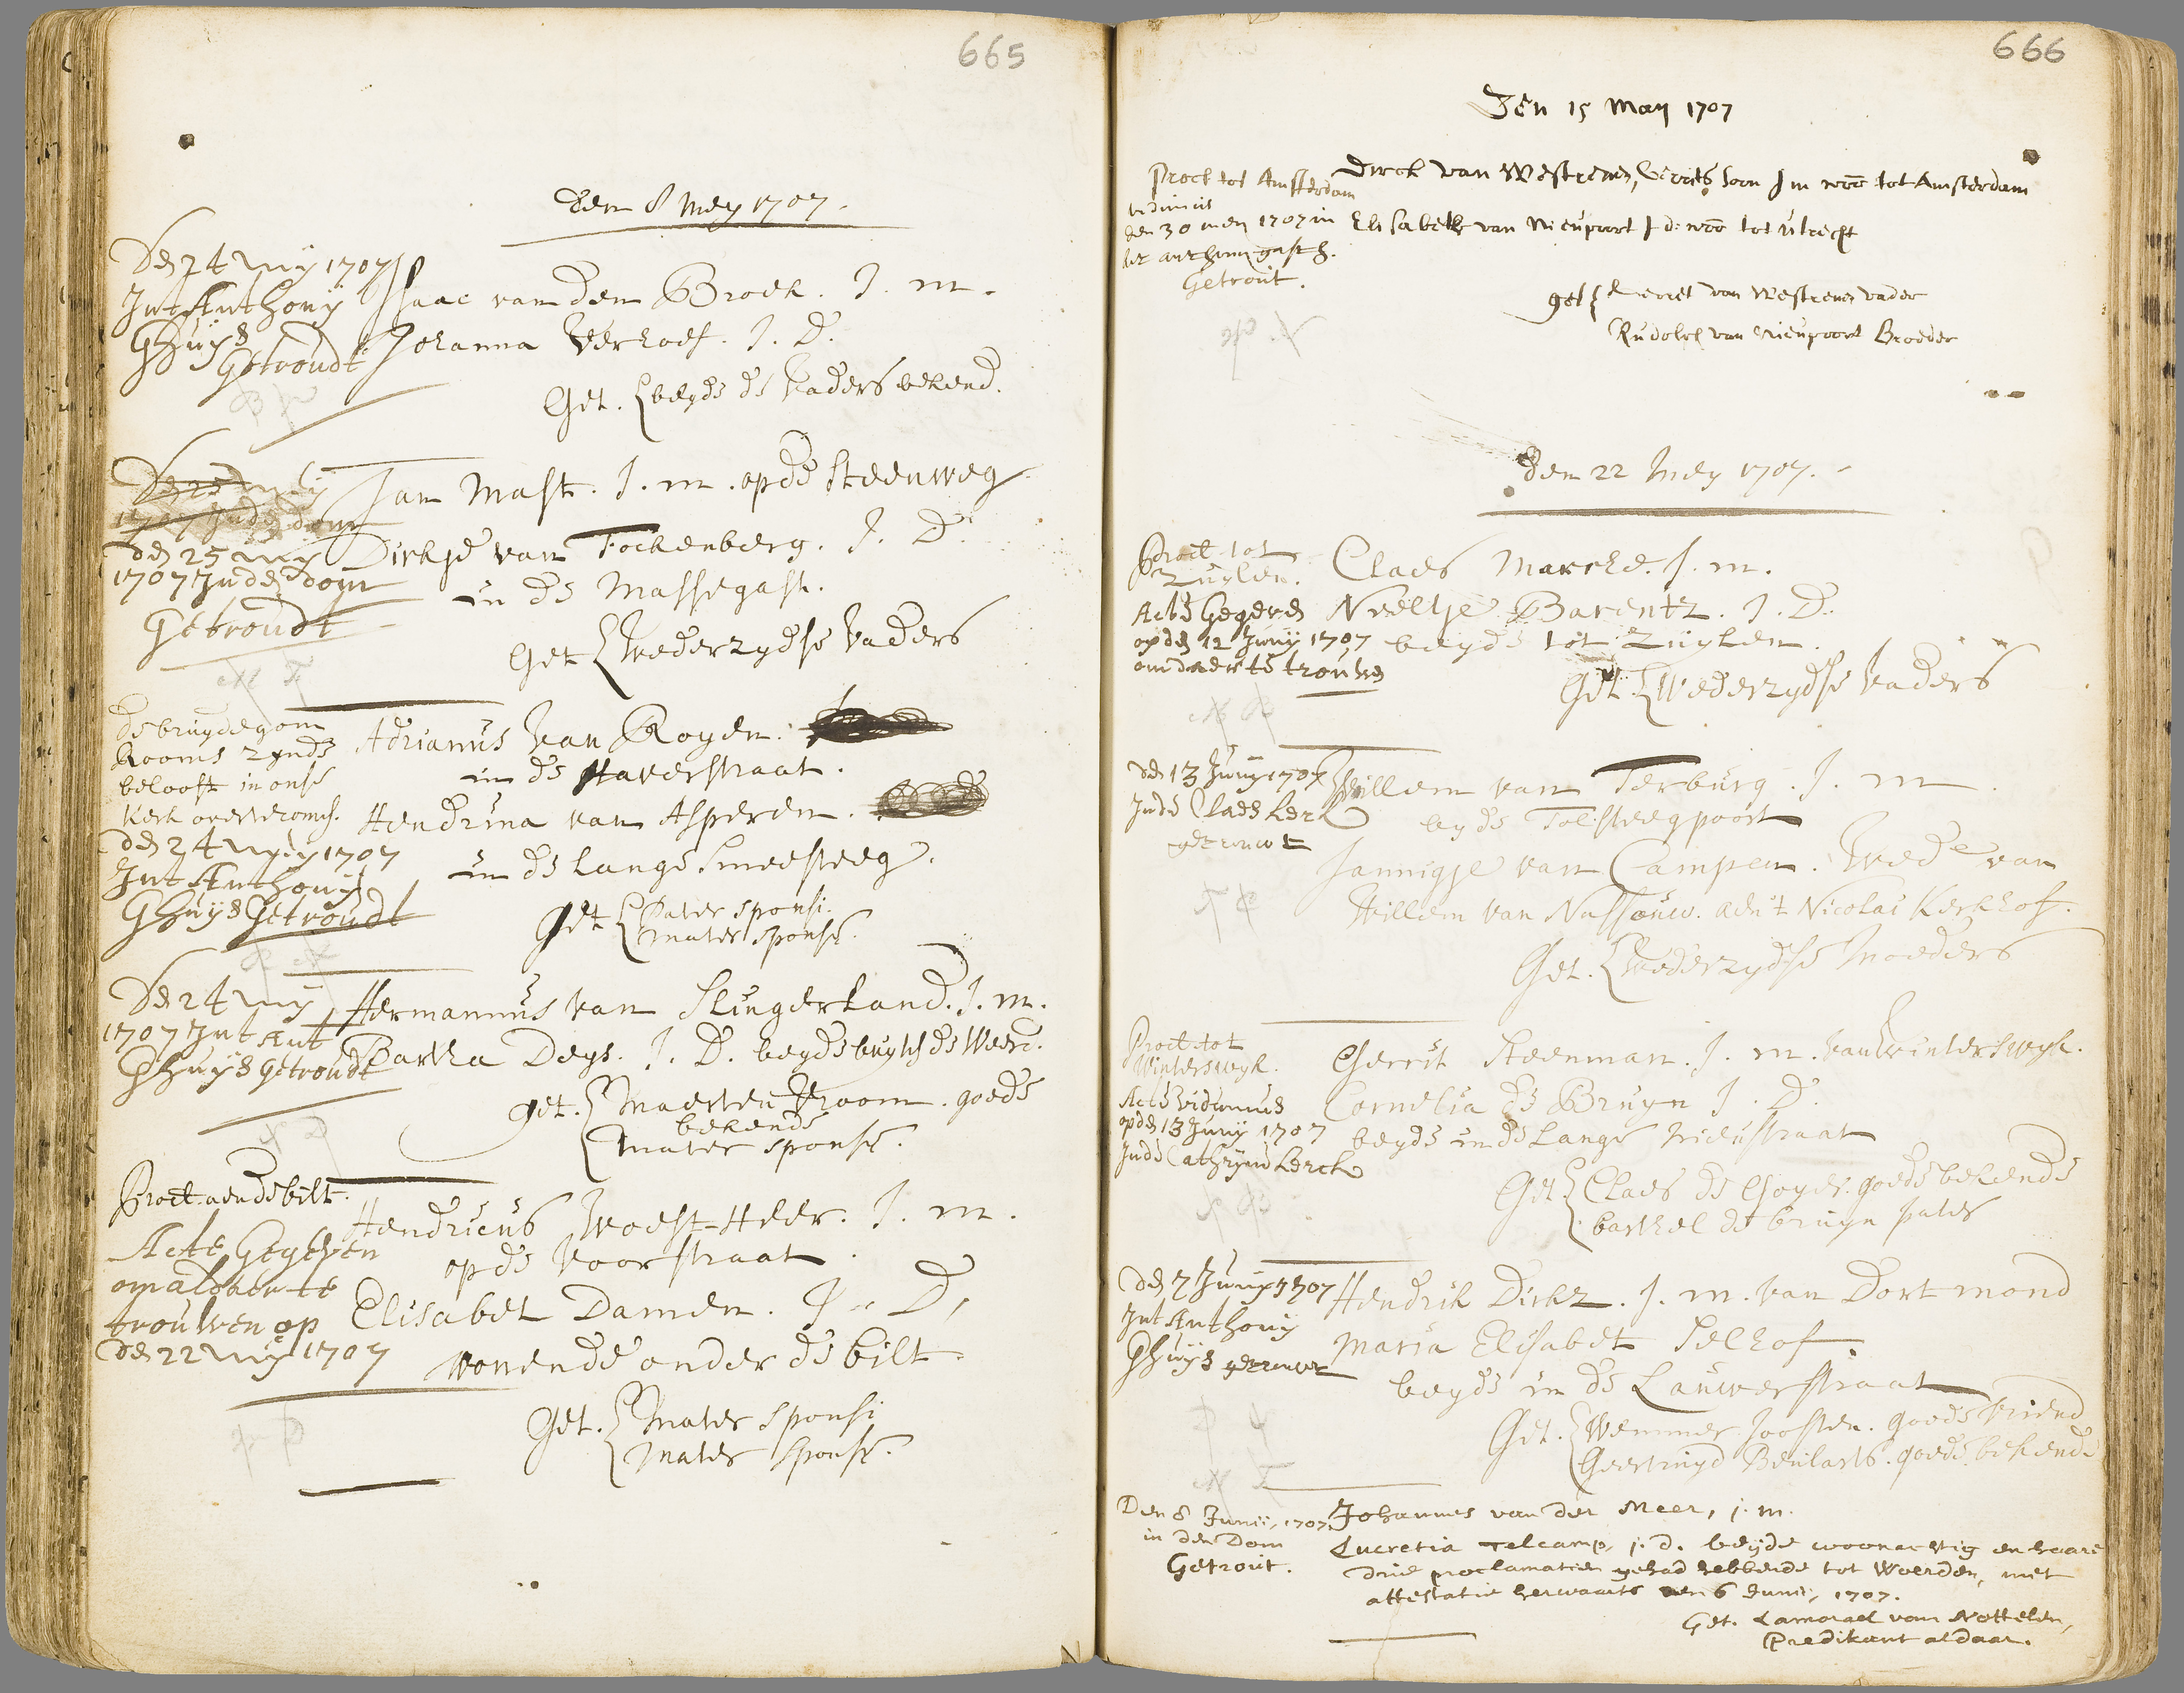 665
den 8 Mey 1707.
Den 24 Mey 1707
Int Anthony
Ghuys
Getroudt
Isaac van den Broek. J. m.
Johanna Verhoef. J. D.
Get. beyde de Vaders bekend.
Den 25 Mey
1707 Inden dom
den 25 Mey
1707 Inden dom
Getroudt
Jan Mast. J. m. op de Steenweg
Dirkje van Fockenberg. J. D.
in de Massegast.
Get wederzydse Vaders
de bruydegom
Rooms zynde
belooft in onse
Kerk over te comen.
den 24 Mey 1707
Int Anthony
Ghuys Getroudt
Adrianus van Royen.
in de Haverstraat.
Hendrina van Asperen.
in de lange Smeesteeg.
Get Pater sponsi.
mater sponsæ.
Den 24 Mey
1707 Int Ant
Ghuys Getroudt
Hermannus van Slingerland. J. m.
Bartha Deys. J. D. beyde buyten de Weerd.
get. Maerten Vroom. goede
bekende
mater sponsæ.
Proct. aen de bilt.
Acte Gegeven
om aldaer te
trouwen op
den 22 Mey 1707
Hendricus Woest-Heer. J. m.
op de Voorstraat.
Elisabet Damen. J. D,
wonende onder de bilt.
Get. Mater sponsi
Mater Sponsæ.
666
Den 15 May 1707
Proct tot Amsterdam
vidimus
den 30 mey 1707 in
het anthoni gasth.
Getrout.
Dirck van Westrenen, Gerrits soon J m woo tot Amsterdam
Elisabeth van Nieupoort J d. woo tot Utrecht
get Gerret van Westrenen vader
Rudolph van Nieupoort Broeder
den 22 Mey 1707.
Proct tot
Zuylen.
Acte Gegeven
op den 12 Juny 1707
om daer te trouwen
Claes Marche. J. m.
Neeltje Barentz. J. D.
beyde tot Zuylen.
Get. Wederzydse Vaders
den 13 Juny 1707
Inde Claes kerck
getrouwt
Willem van Terburg. J. m.
by de Tolsteegpoort
Jannigje van Campen. Wede van
Willem van Nassouw. aen 't Nicolai Kerkhof.
Get. Wederzydse Moeders
Proct tot
Winterswyk.
Acte vidimus
op den 13 Juny 1707
Inde Cathryne kerck
Gerrit Steenman. J. m. van Winterswyk.
Cornelia de Bruyn J. D.
beyde in de Lange Nieustraat
Get Claes de Goyer. goede bekende
barthel de bruyn pater
den 7 Juny 1707
Int Anthony
Ghuys getrouwt
Hendrik Dirkz. J. m. van Dortmond
Maria Elisabet Selhof.
beyde in de Lauwerstraat
Get. Wemmer Joosten. goede vriend
Geertruyd Beularts. goede bekende
Den 8 Junij, 1707.
in den Dom
Getrout.
Johannes van der Meer, j. m.
Lucretia Telcamp, j. d. beyde woonachtig en haare
drie proclamatien gehad hebbende tot Woerden, met
attestatie herwaarts den 6 Junij, 1707.
Get. Lamorael van Nottelen,
Predikant aldaar.